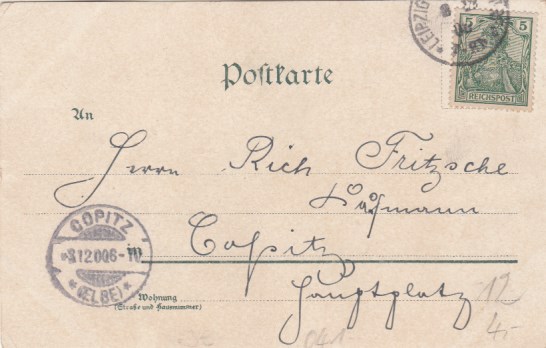 LEIPZIG
5 5
REICHSPOST
Postkarte
An
Herrn Rich Fritzsche
Copitz
Hauptplatz
COPITZ
*8 12 00 6-7N
*(ELBE)*
W
Wohnung
(Straße und Hausnummer)
12
4,-